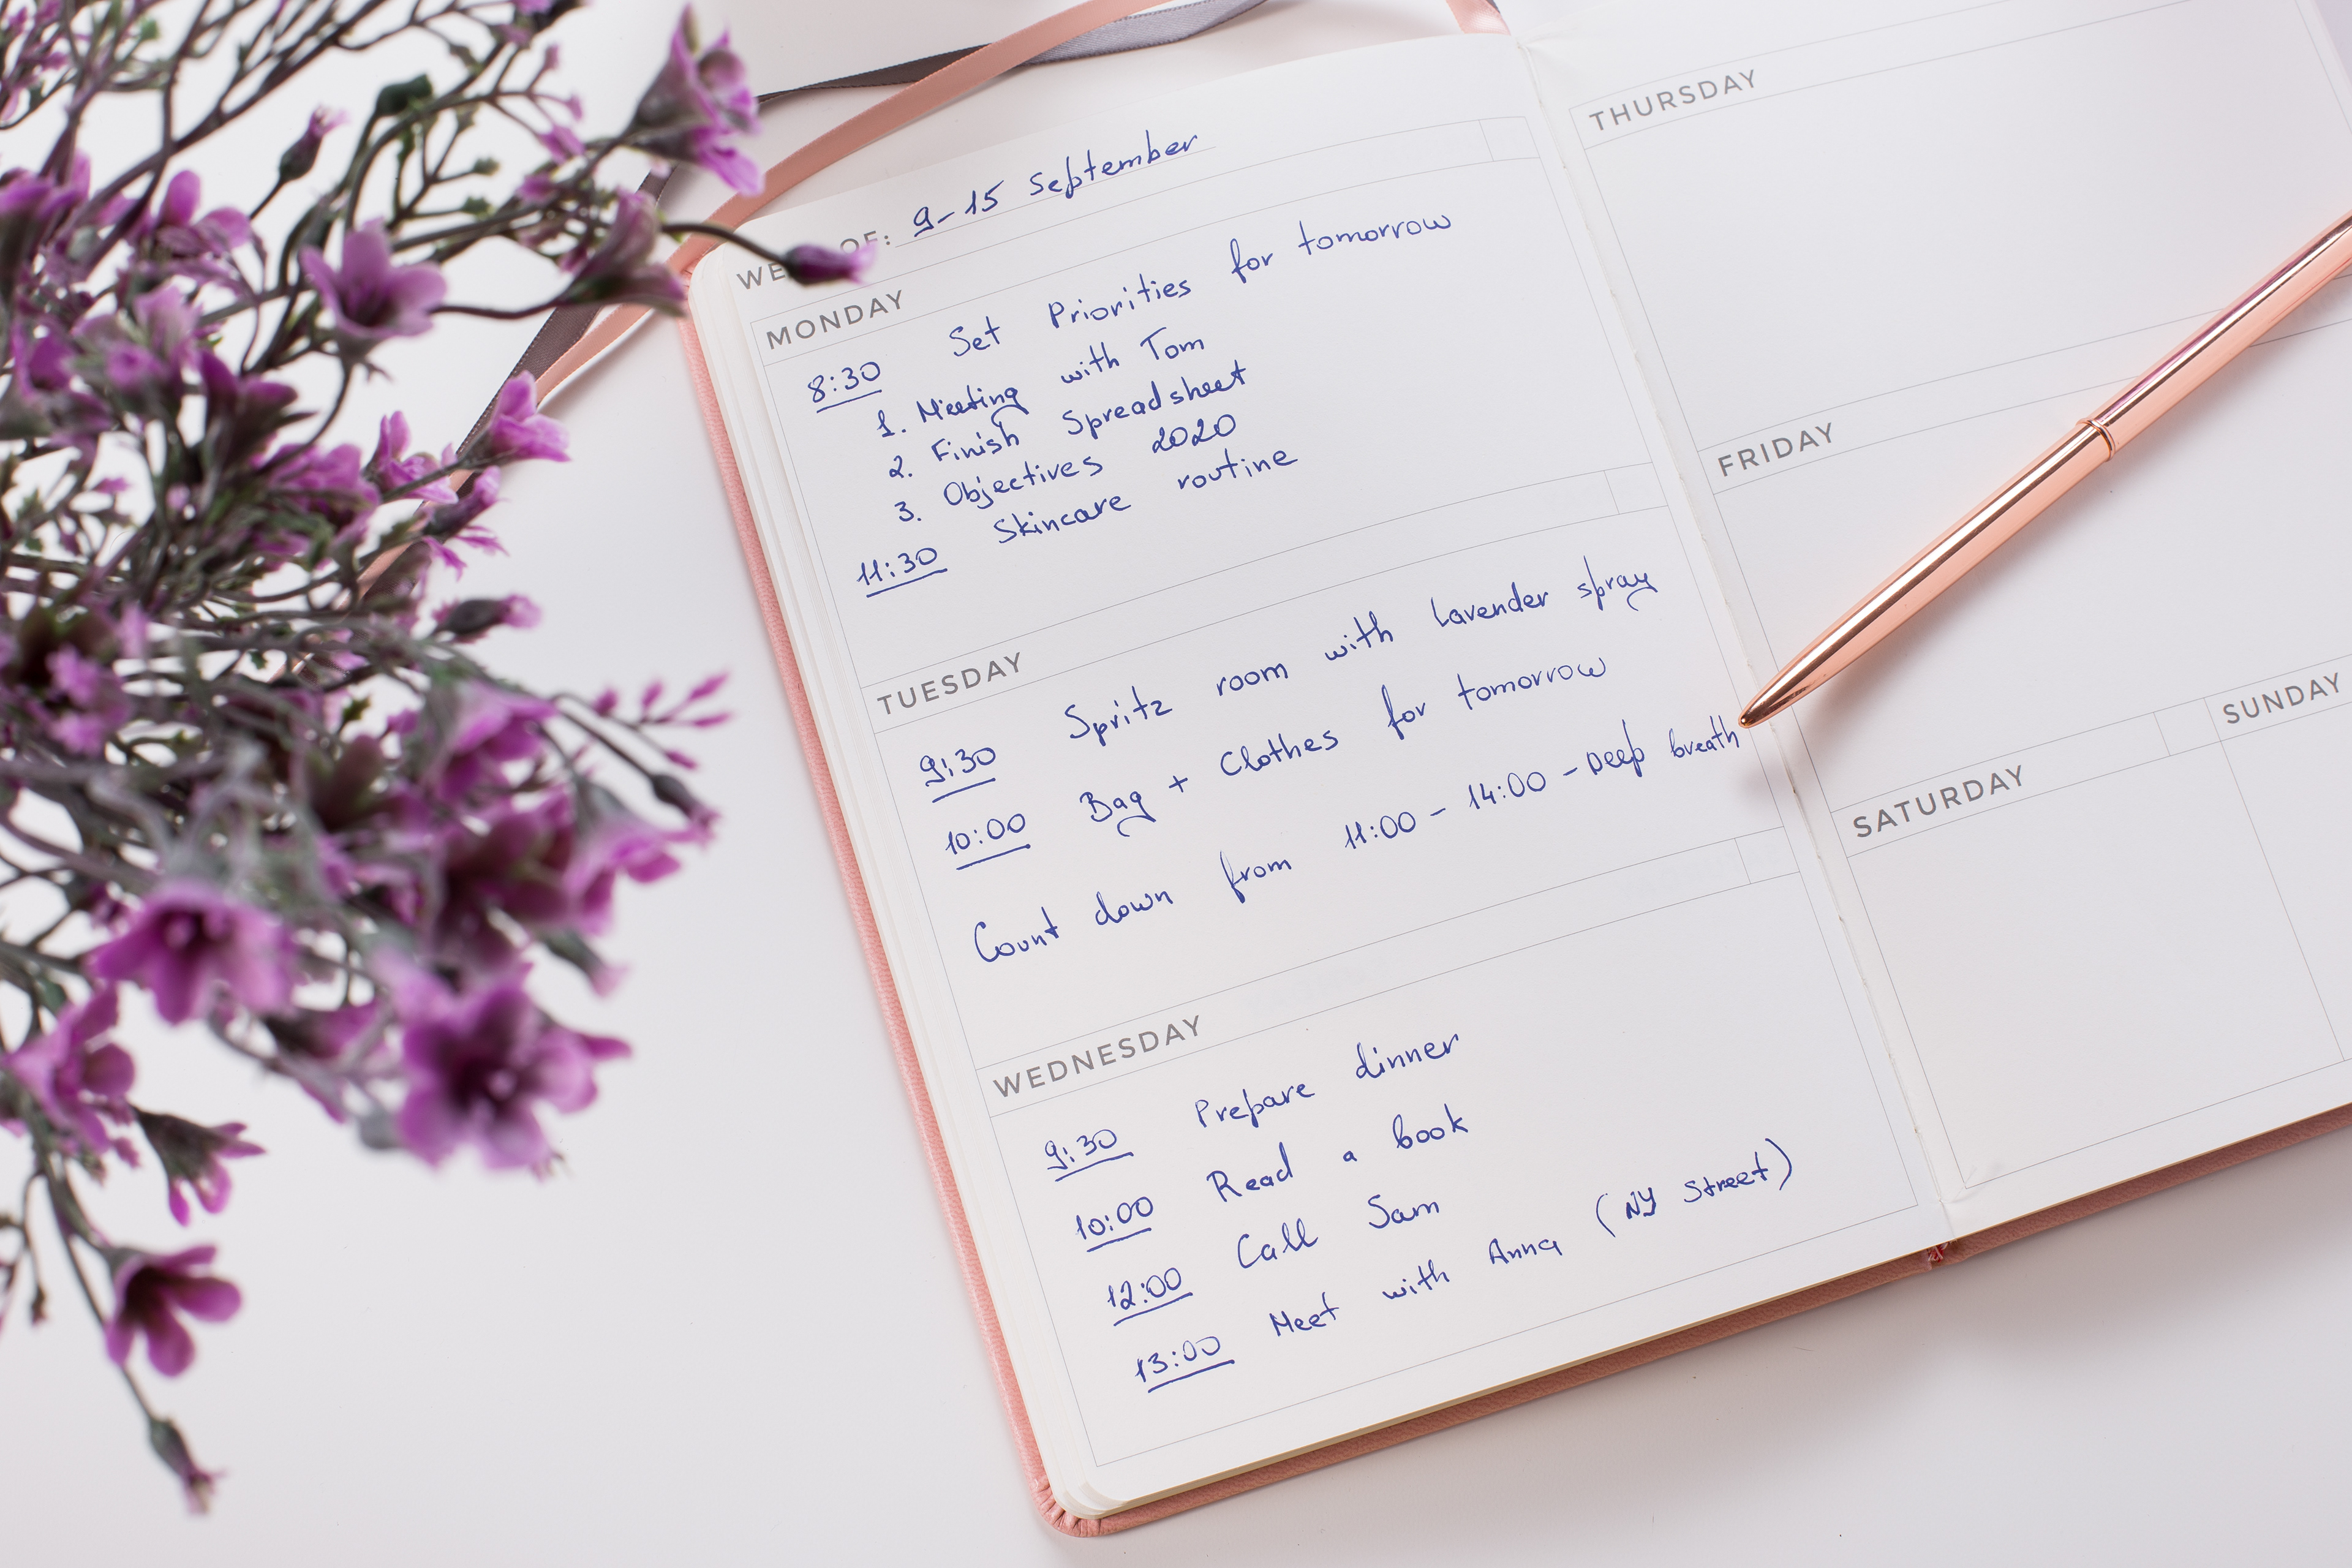 WE OF: 9-15 September
MONDAY
8:30 Set Priorities for tomorrow
1. Meeting with Tom
2. Finish Spreadsheet
3. Objectives 2020
11:30 Skincare routine
TUESDAY
9:30 Spritz room with Lavender spray
10:00 Bag + Clothes for tomorrow
Count down from 11:00 - 14:00 - Deep breath
WEDNESDAY
9:30 Prepare dinner
10:00 Read a book
12:00 Call Sam
13:00 Meet with Anna (NY Street)
THURSDAY
FRIDAY
SATURDAY
SUNDAY